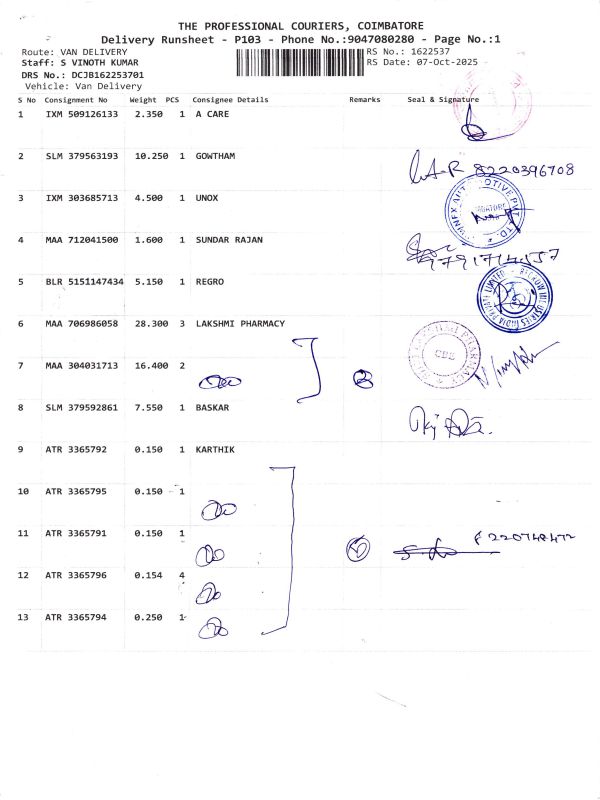 THE PROFESSIONAL COURIERS, COIMBATORE
Delivery Runsheet - P103 - Phone No.:9047080280 - Page No.:1
Route: VAN DELIVERY RS No.: 1622537
Staff: S VINOTH KUMAR RS Date: 07-Oct-2025
DRS No.: DCJB162253701
Vehicle: Van Delivery
S No Consignment No Weight PCS Consignee Details Remarks Seal & Signature
1 IXM 509126133 2.350 1 A CARE
2 SLM 379563193 10.250 1 GOWTHAM 8220396708
3 IXM 303685713 4.500 1 UNOX
4 MAA 712041500 1.600 1 SUNDAR RAJAN
5 BLR 5151147434 5.150 1 REGRO
6 MAA 706986058 28.300 3 LAKSHMI PHARMACY
7 MAA 304031713 16.400 2 2
8 SLM 379592861 7.550 1 BASKAR
9 ATR 3365792 0.150 1 KARTHIK
10 ATR 3365795 0.150 1
11 ATR 3365791 0.150 1
12 ATR 3365796 0.154 4
13 ATR 3365794 0.250 1